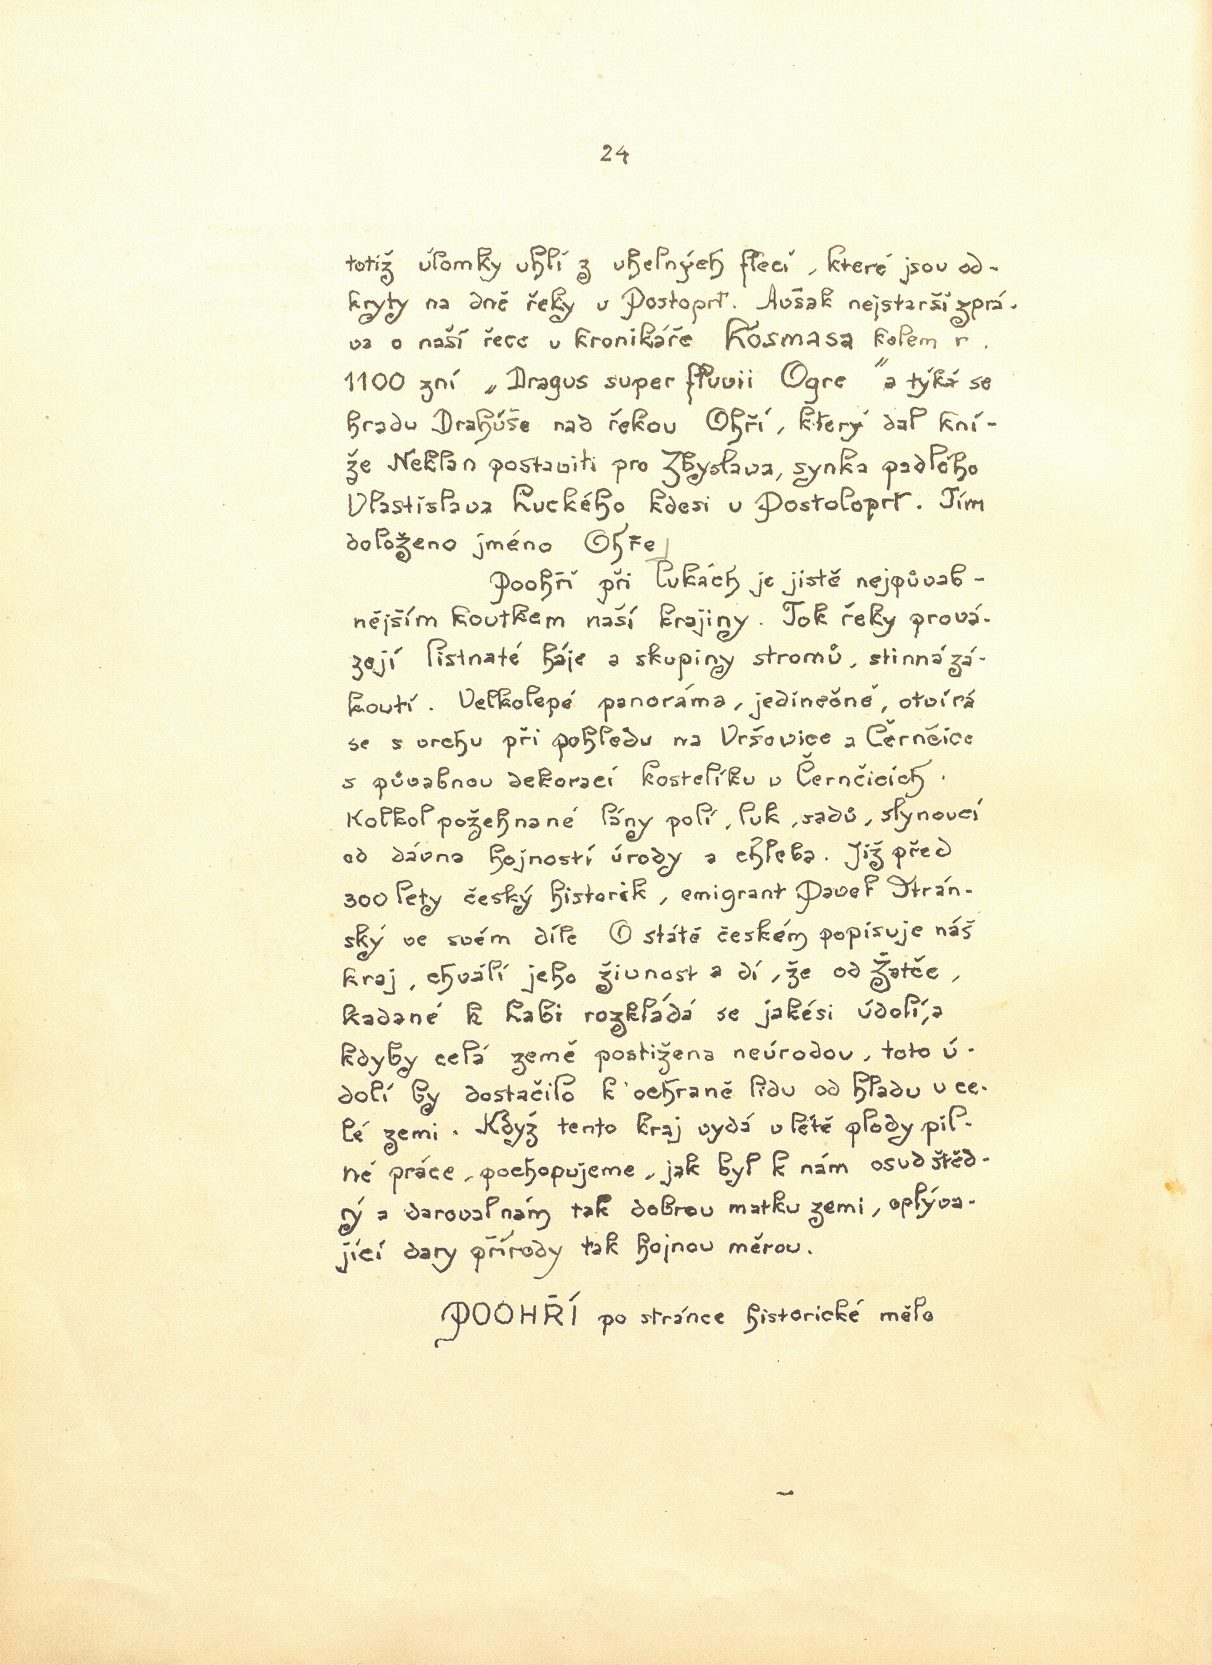 24
totiž úlomky uhlí z uhelných flecí, které jsou od-
kryty na dně řeky u Postoprt. Avšak nejstarší zprá-
va o naší řece u kronikáře Kosmasa kolem r.
1100 zní „Dragus super fluvii Ogre" a týká se
hradu Drahúše nad řekou Ohří, který dal kní-
že Neklan postaviti pro Zbyslava, synka padlého
Vlastislava Luckého kdesi u Postoloprt. Tím
doloženo jméno Ohře
Poohří při lukách je jistě nejpůvab-
nějším koutkem naší krajiny. Tok řeky prová-
zejí listnaté háje a skupiny stromů, stinná zá-
koutí. Velkolepé panoráma, jedinečné, otvírá
se s vrchu při pohledu na Vršovice a Černčice
s půvabnou dekorací kostelíku v Černčicích.
Kolkol požehnané lány polí, luk, sadů, slynoucí
od dávna hojností úrody a chleba. Již před
300 lety český historik, emigrant Pavel Strán-
ský ve svém díle O státě českém popisuje náš
kraj, chválí jeho živnost a dí, že od Žatče,
kadané k Labi rozkládá se jakési údolí, a
kdyby celá země postižena neúrodou, toto ú-
dolí by dostačilo k ochraně lidu od hladu v ce-
lé zemi. Když tento kraj vydá v létě plody pil-
né práce, pochopujeme, jak byl k nám osud štěd-
rý a daroval nám tak dobrou matku zemi, oplýva-
jící dary přírody tak hojnou měrou.
POOHŘÍ po stránce historické mělo